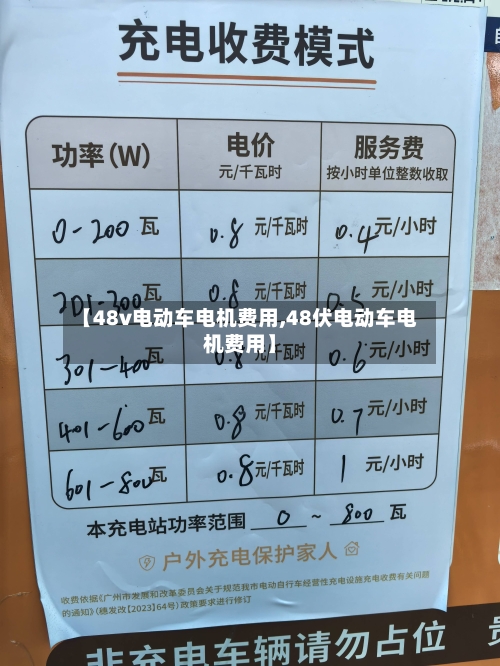 充电收费模式
功率(W) 电价 元/千瓦时 服务费 按小时单位整数收取
0-200 瓦 0.8 元/千瓦时 0.4 元/小时
201-300 瓦 0.8 元/千瓦时 0.5 元/小时
【48v电动车电机费用,48伏电动车电
机费用】
301-400 瓦 0.8 元/千瓦时 0.6 元/小时
401-600 瓦 0.8 元/千瓦时 0.7 元/小时
601-800 瓦 0.8 元/千瓦时 1 元/小时
本充电站功率范围 0 ~ 800 瓦
户外充电保护家人
收费依据《广州市发展和改革委员会关于规范我市电动自行车经营性充电设施充电收费有关问题
的通知》(穗发改【2023】64号)政策要求进行修订
非充电车辆请勿占位